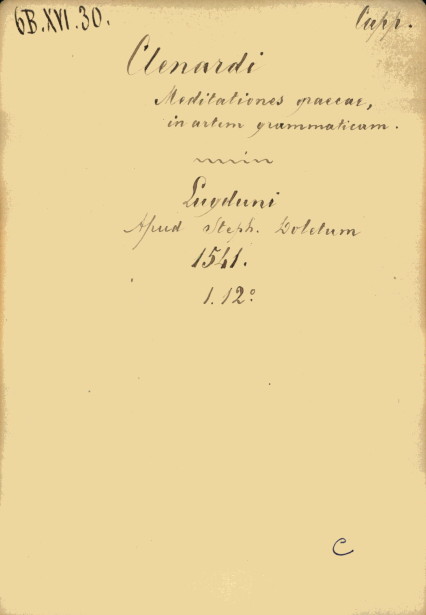 6B.XVI.30.
Capp.
Clenardi
Meditationes graecae,
in artem grammaticam.
Lugduni
Apud Steph. Doletum
1541.
1.12º
C